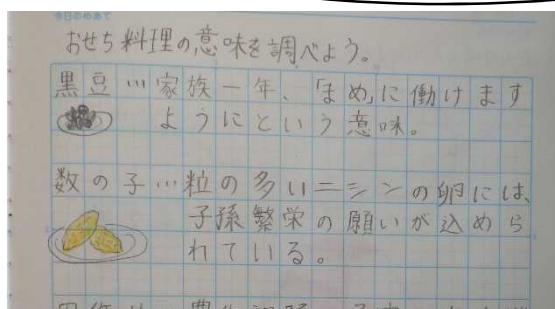 今日のめあて
おせち料理の意味を調べよう。
黒豆…家族一年、「まめ」に働けます
ようにという意味。
数の子…粒の多いニシンの卵には、
子孫繁栄の願いが込めら
れている。